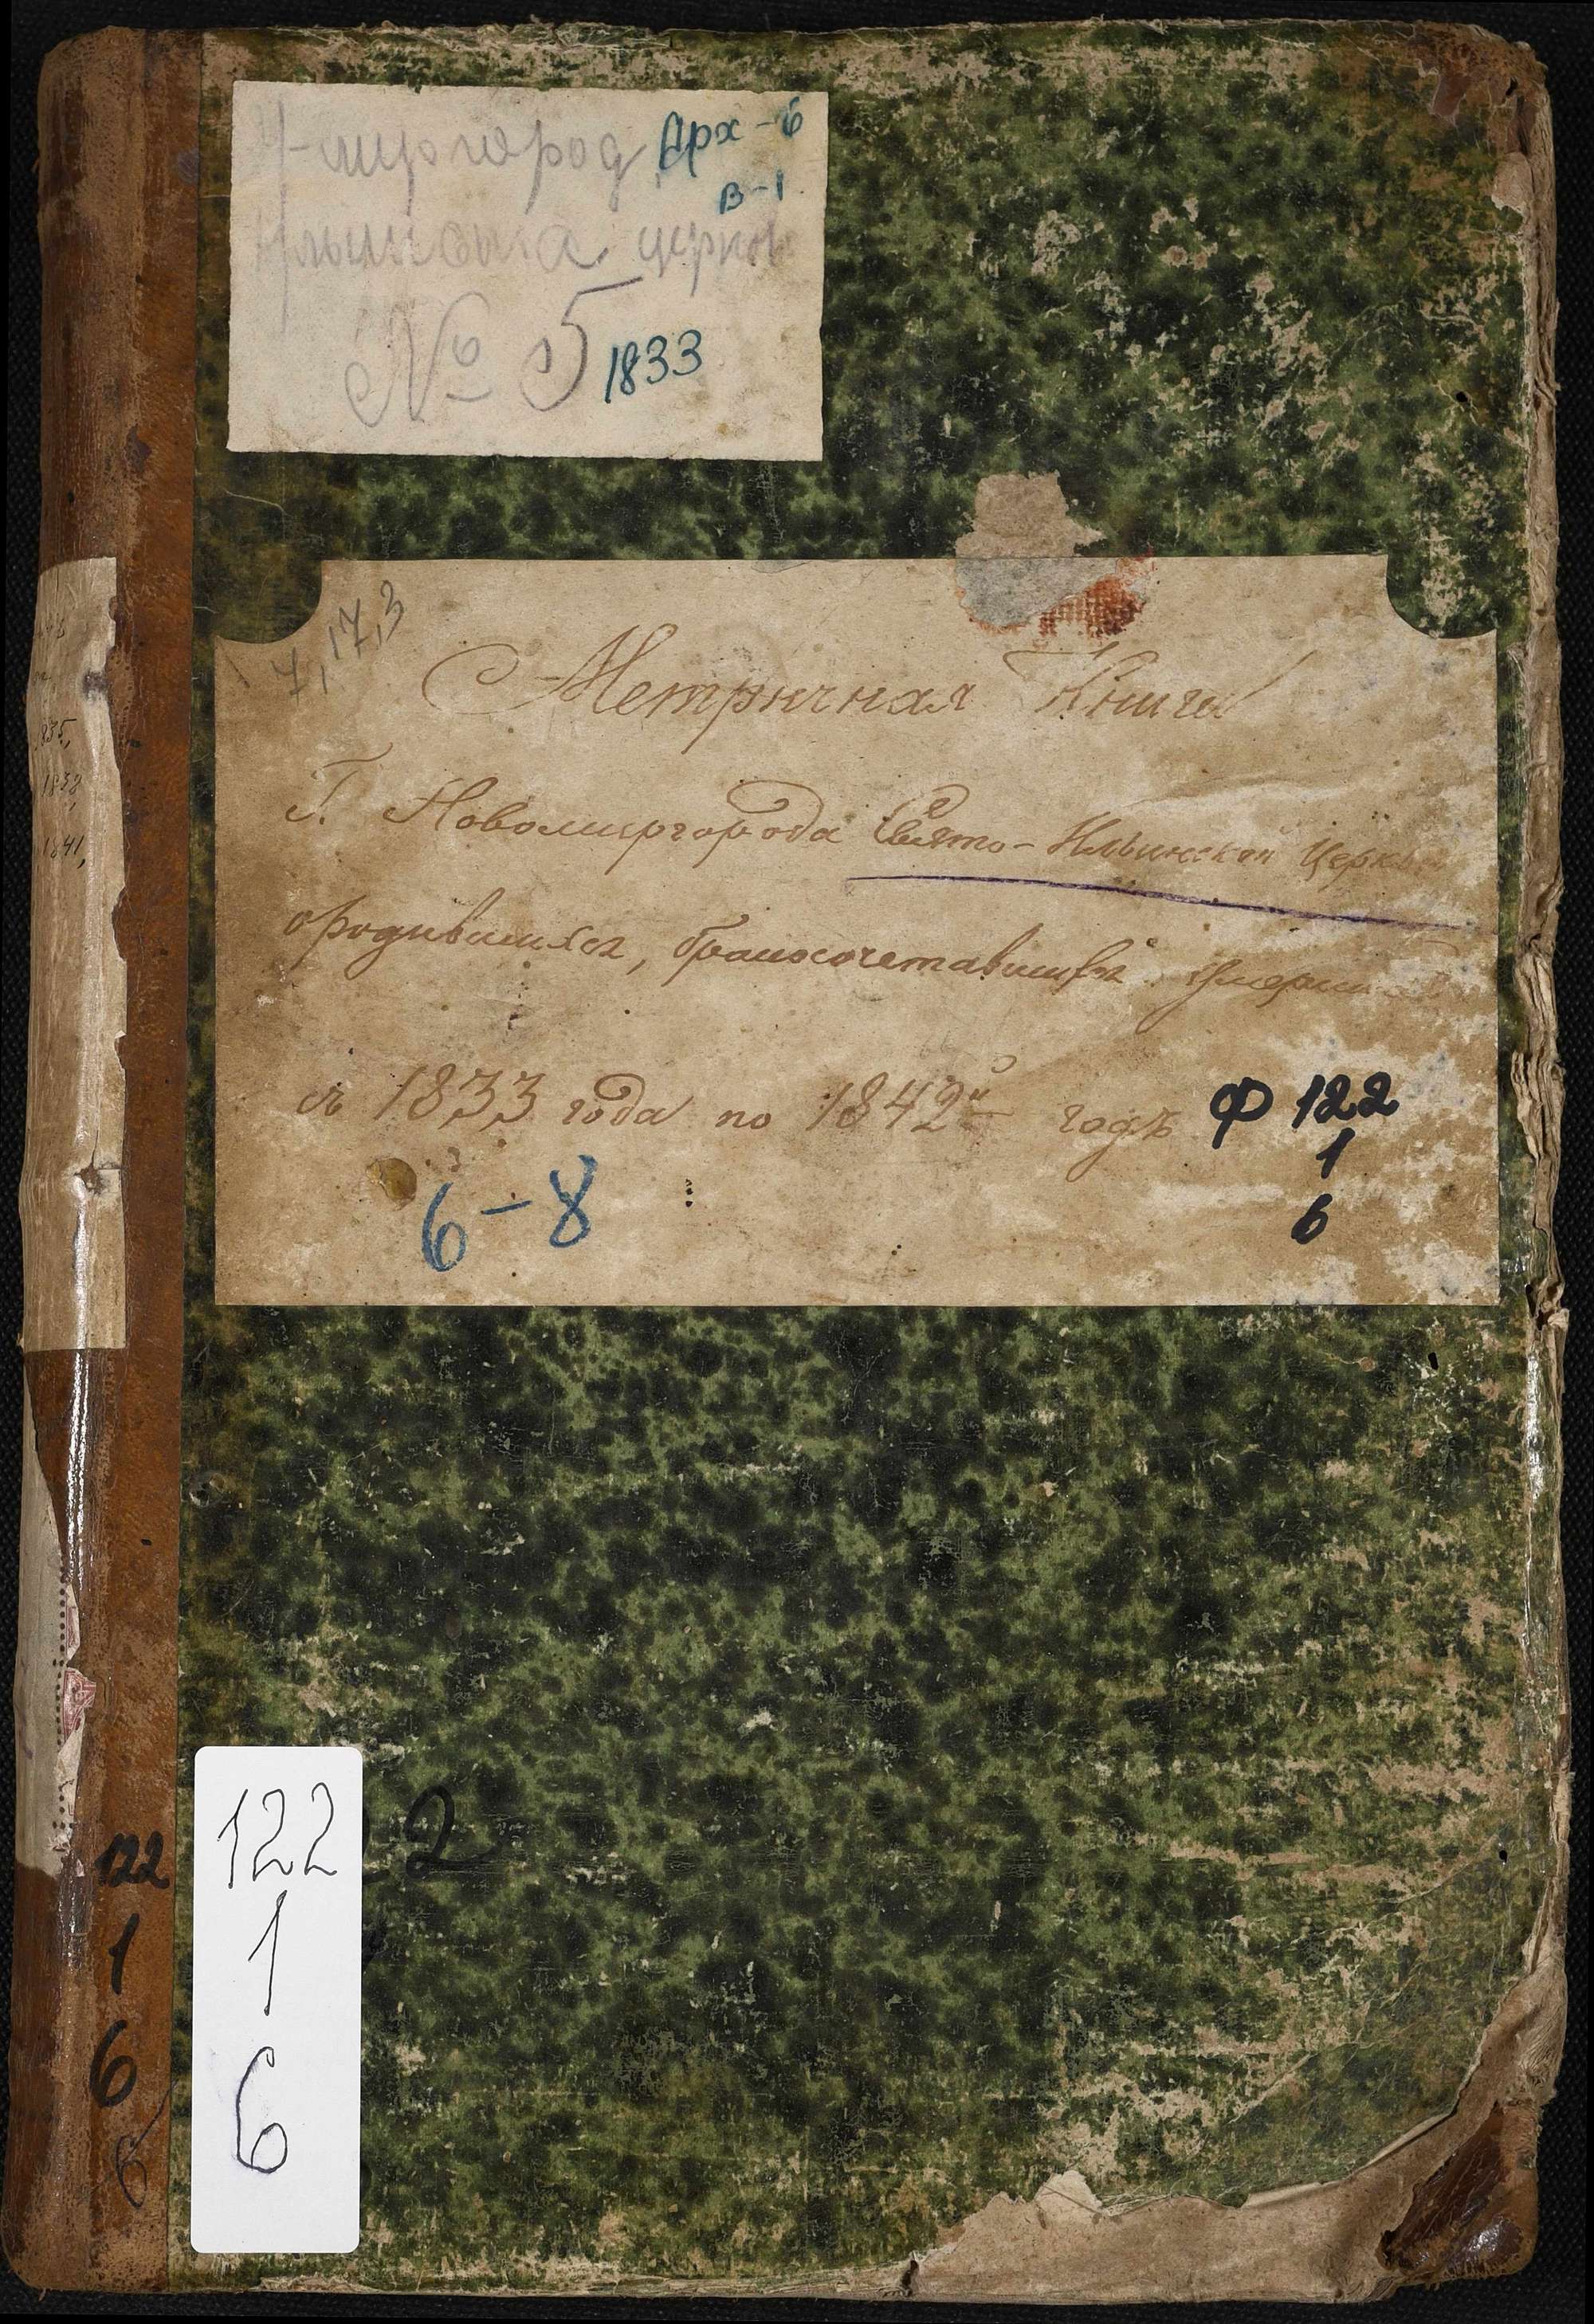 Н-миргород Арх-6
В-1
Ильинська церков
№ 5 1833
7,17,3
Метричная Книга
Г. Новомиргорода Свято-Ильинской Церкви
о родившихся, бракосочетавшихся
съ 1833 года по 1842й годъ
Ф 122
1
6
6-8
835,
1838,
1841,
122
1
6
6
122
1
6
2